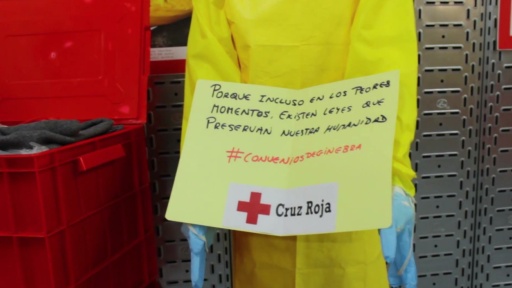 PORQUE INCLUSO EN LOS PEORES
MOMENTOS. EXISTEN LEYES QUE
PRESERVAN NUESTRA HUMANIDAD
#CONVENIOSDEGINEBRA
Cruz Roja